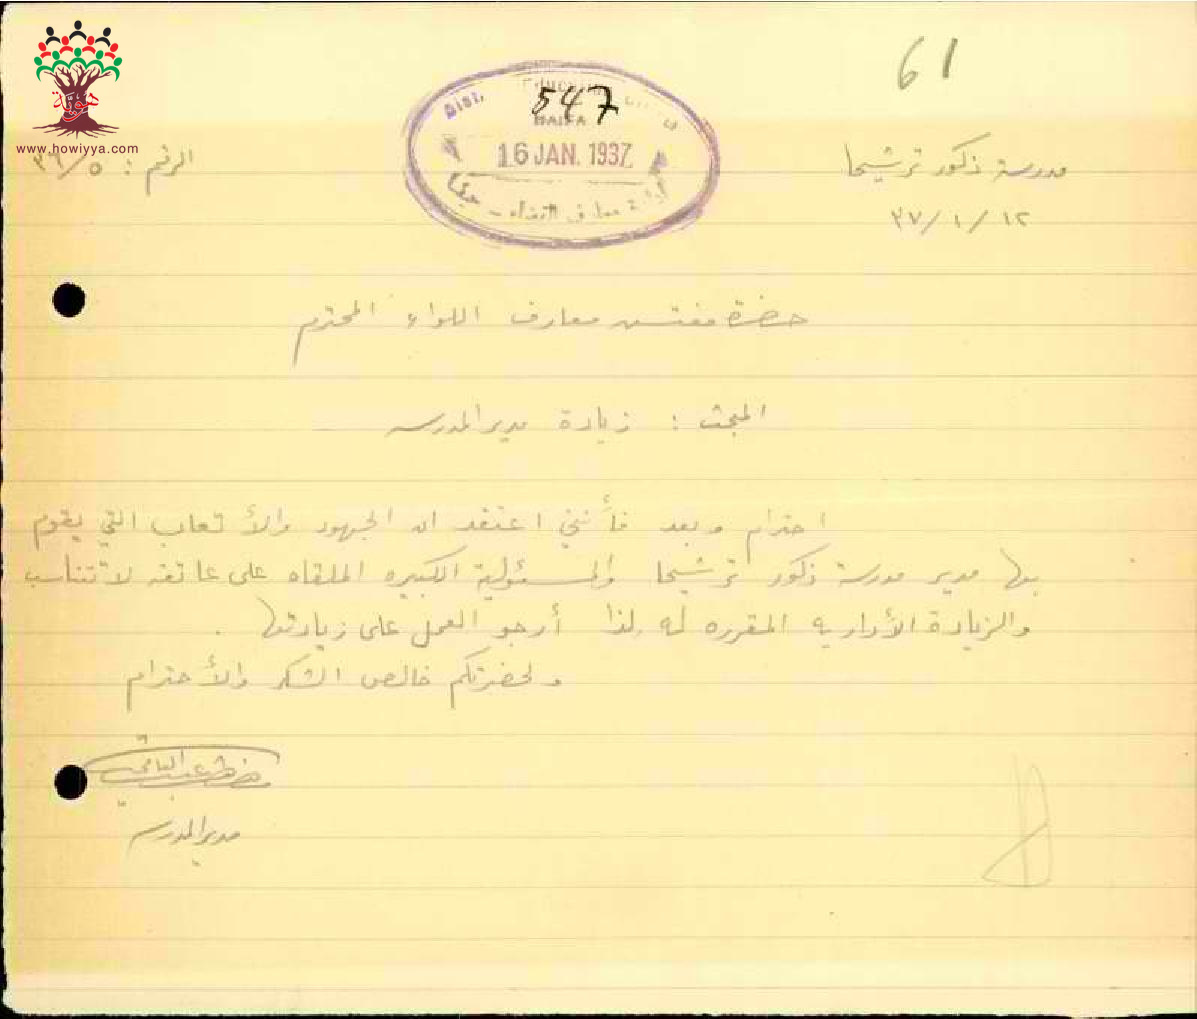 61
هوية
www.howiyya.com
Dist. Education
547
HAIFA
16 JAN. 1937
معارف اللواء - حيفا
مدرسة ذكور ترشيحا
الرقم : ٣٦/٥
٣٧/١/١٢
حضرة مفتش معارف اللواء المحترم
المبحث : زيادة مدير المدرسه
احترام وبعد فأنني اعتقد ان الجهود والأتعاب التي يقوم
بها مدير مدرسة ذكور ترشيحا والمسئولية الكبيره الملقاه على عاتقه لا تتناسب
والزيادة الأداريه المقرره له لذا أرجو العمل على زيادتها .
ولحضرتكم خالص الشكر والأحترام
مدير المدرسه